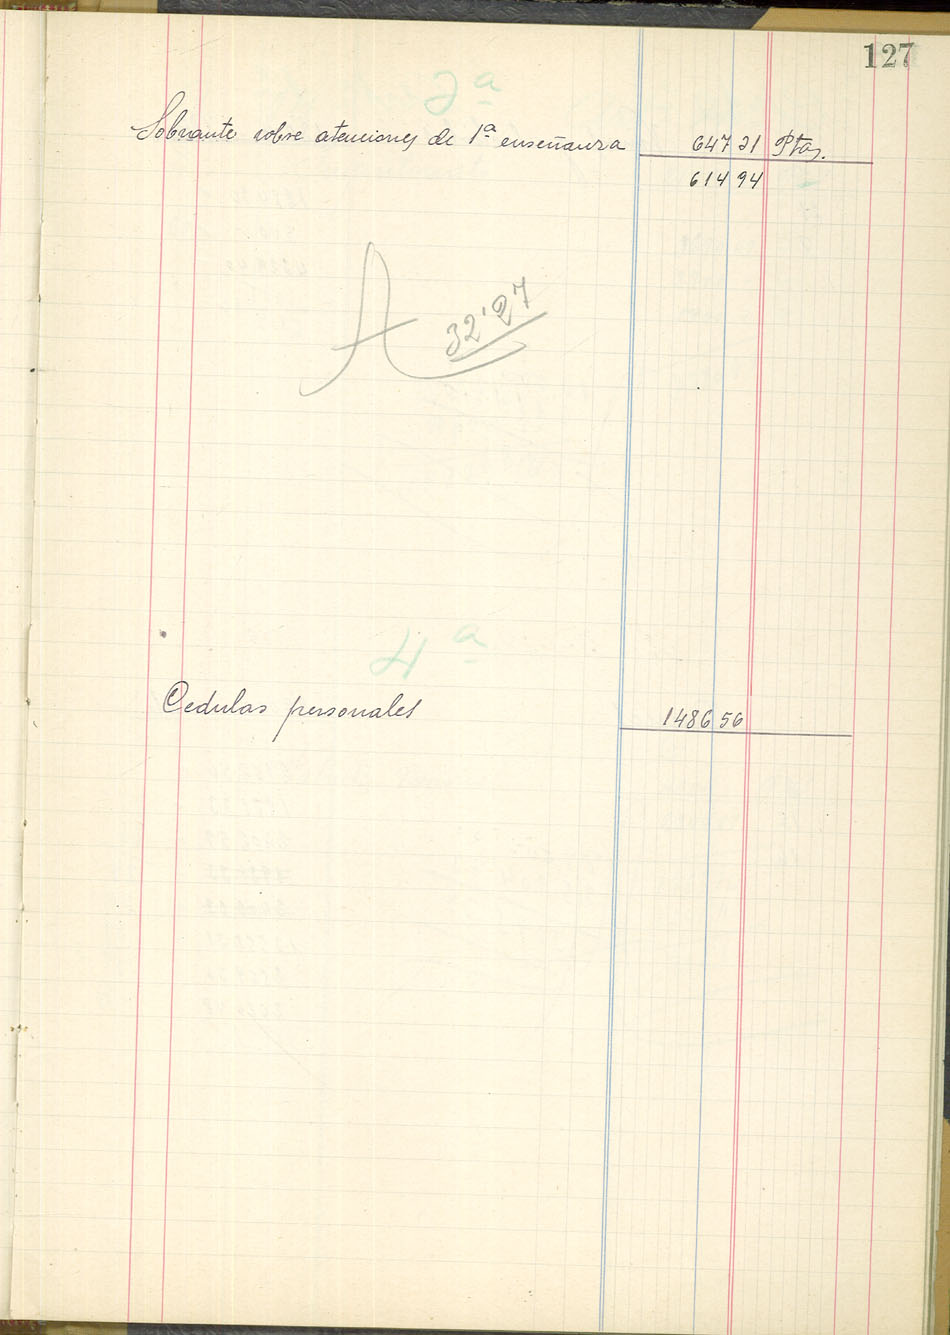 127
2ª
Sobrante sobre atenciones de 1ª enseñanza 647 21 Ptas.
614 94
A 32'27
4ª
Cedulas personales 1486 56